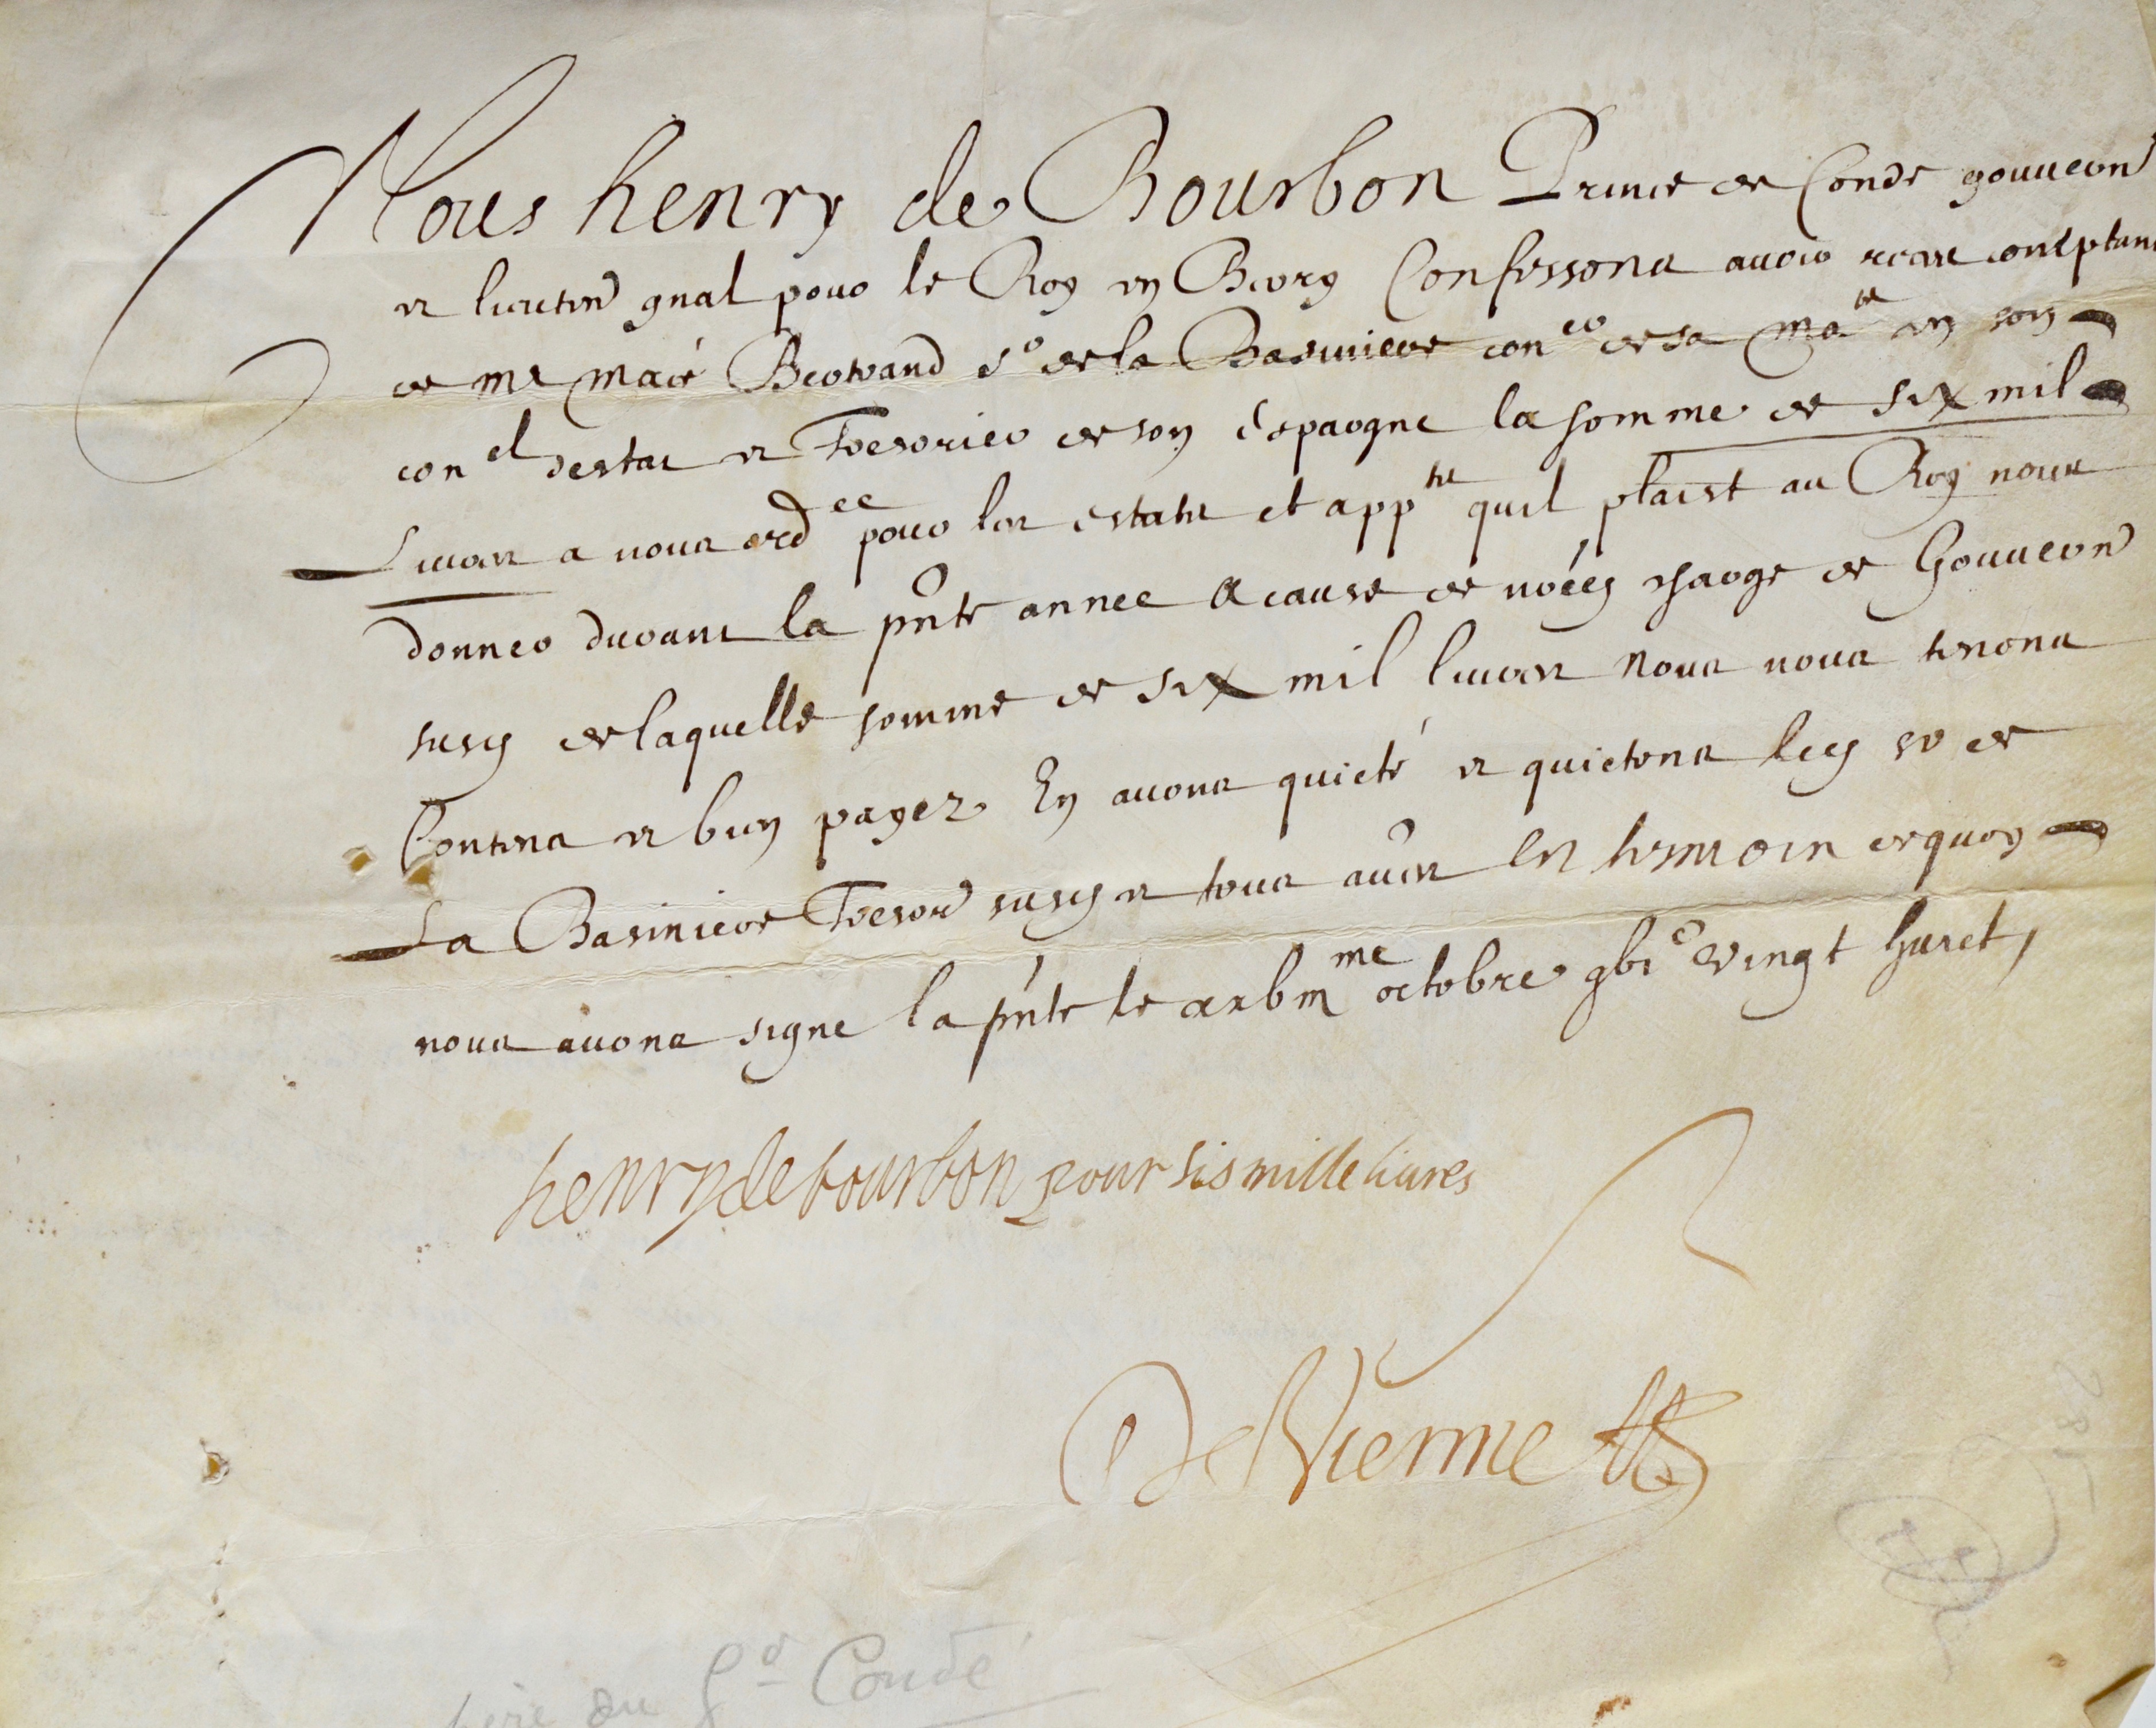 Nous henry de Bourbon Prince de Condé gouuern
et lieuten gnal pour le Roy en Berry Confessons auoir receu comptant
de me Macé Bertrand Sr de la Basiniere coner de sa Mate en son
conel destat et Tresorier de son espargne la somme de six mil
Liures a nous ordee pour les estatz et apptz quil plaist au Roy nous
donner durant la pnte annee a cause de nred charge de Gouuern
susd de laquelle somme de six mil liures Nous nous tenons
Contens et bien payez En auons quicté et quictons led sr de
La Basiniere Tresor susd et tous aues en tesmoin de quoy
nous auons signe la pnte le xxbiiime octobre gbic vingt huict,
henry de bourbon pour sis mille liures
De Vienne
père du Gd Condé
285